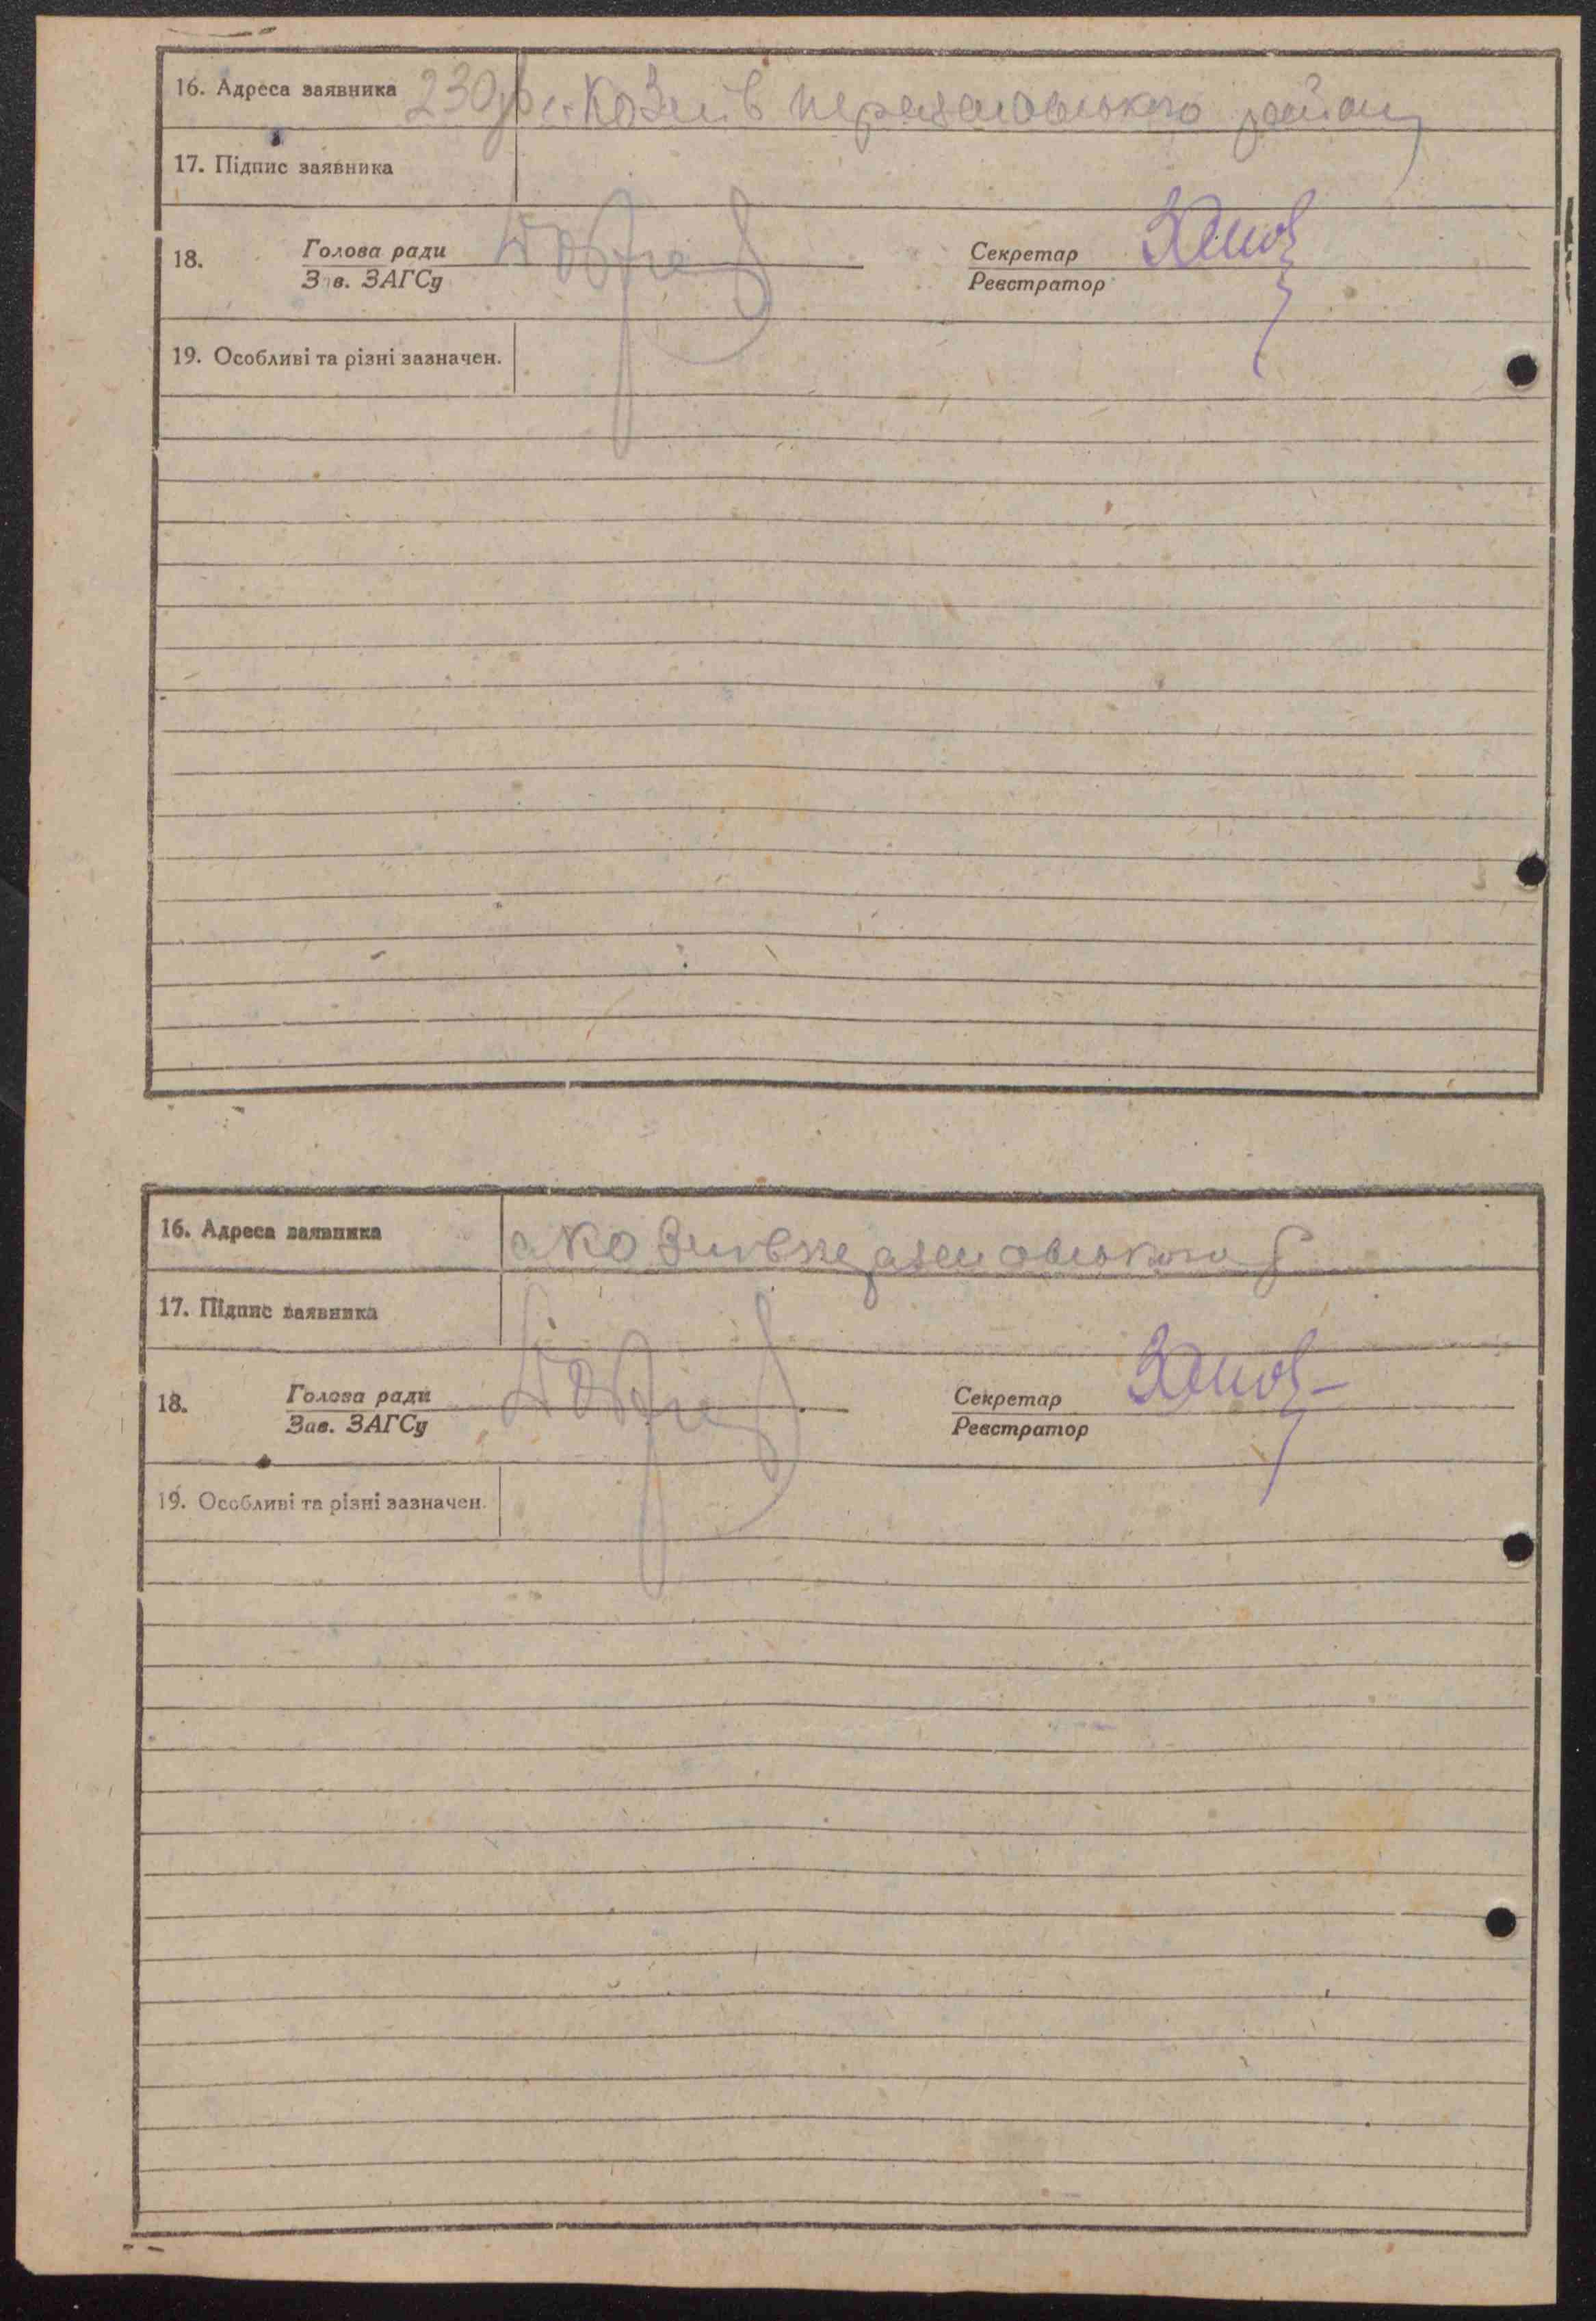 16. Адреса заявника 230 с. Козлів Перемовського району
17. Підпис заявника
18. Голова ради Секретар
Зав. ЗАГСу Реєстратор
19. Особливі та різні зазначен.
16. Адреса заявника с Козлів
17. Підпис заявника
18. Голова ради Секретар
Зав. ЗАГСу Реєстратор
19. Особливі та різні зазначен.